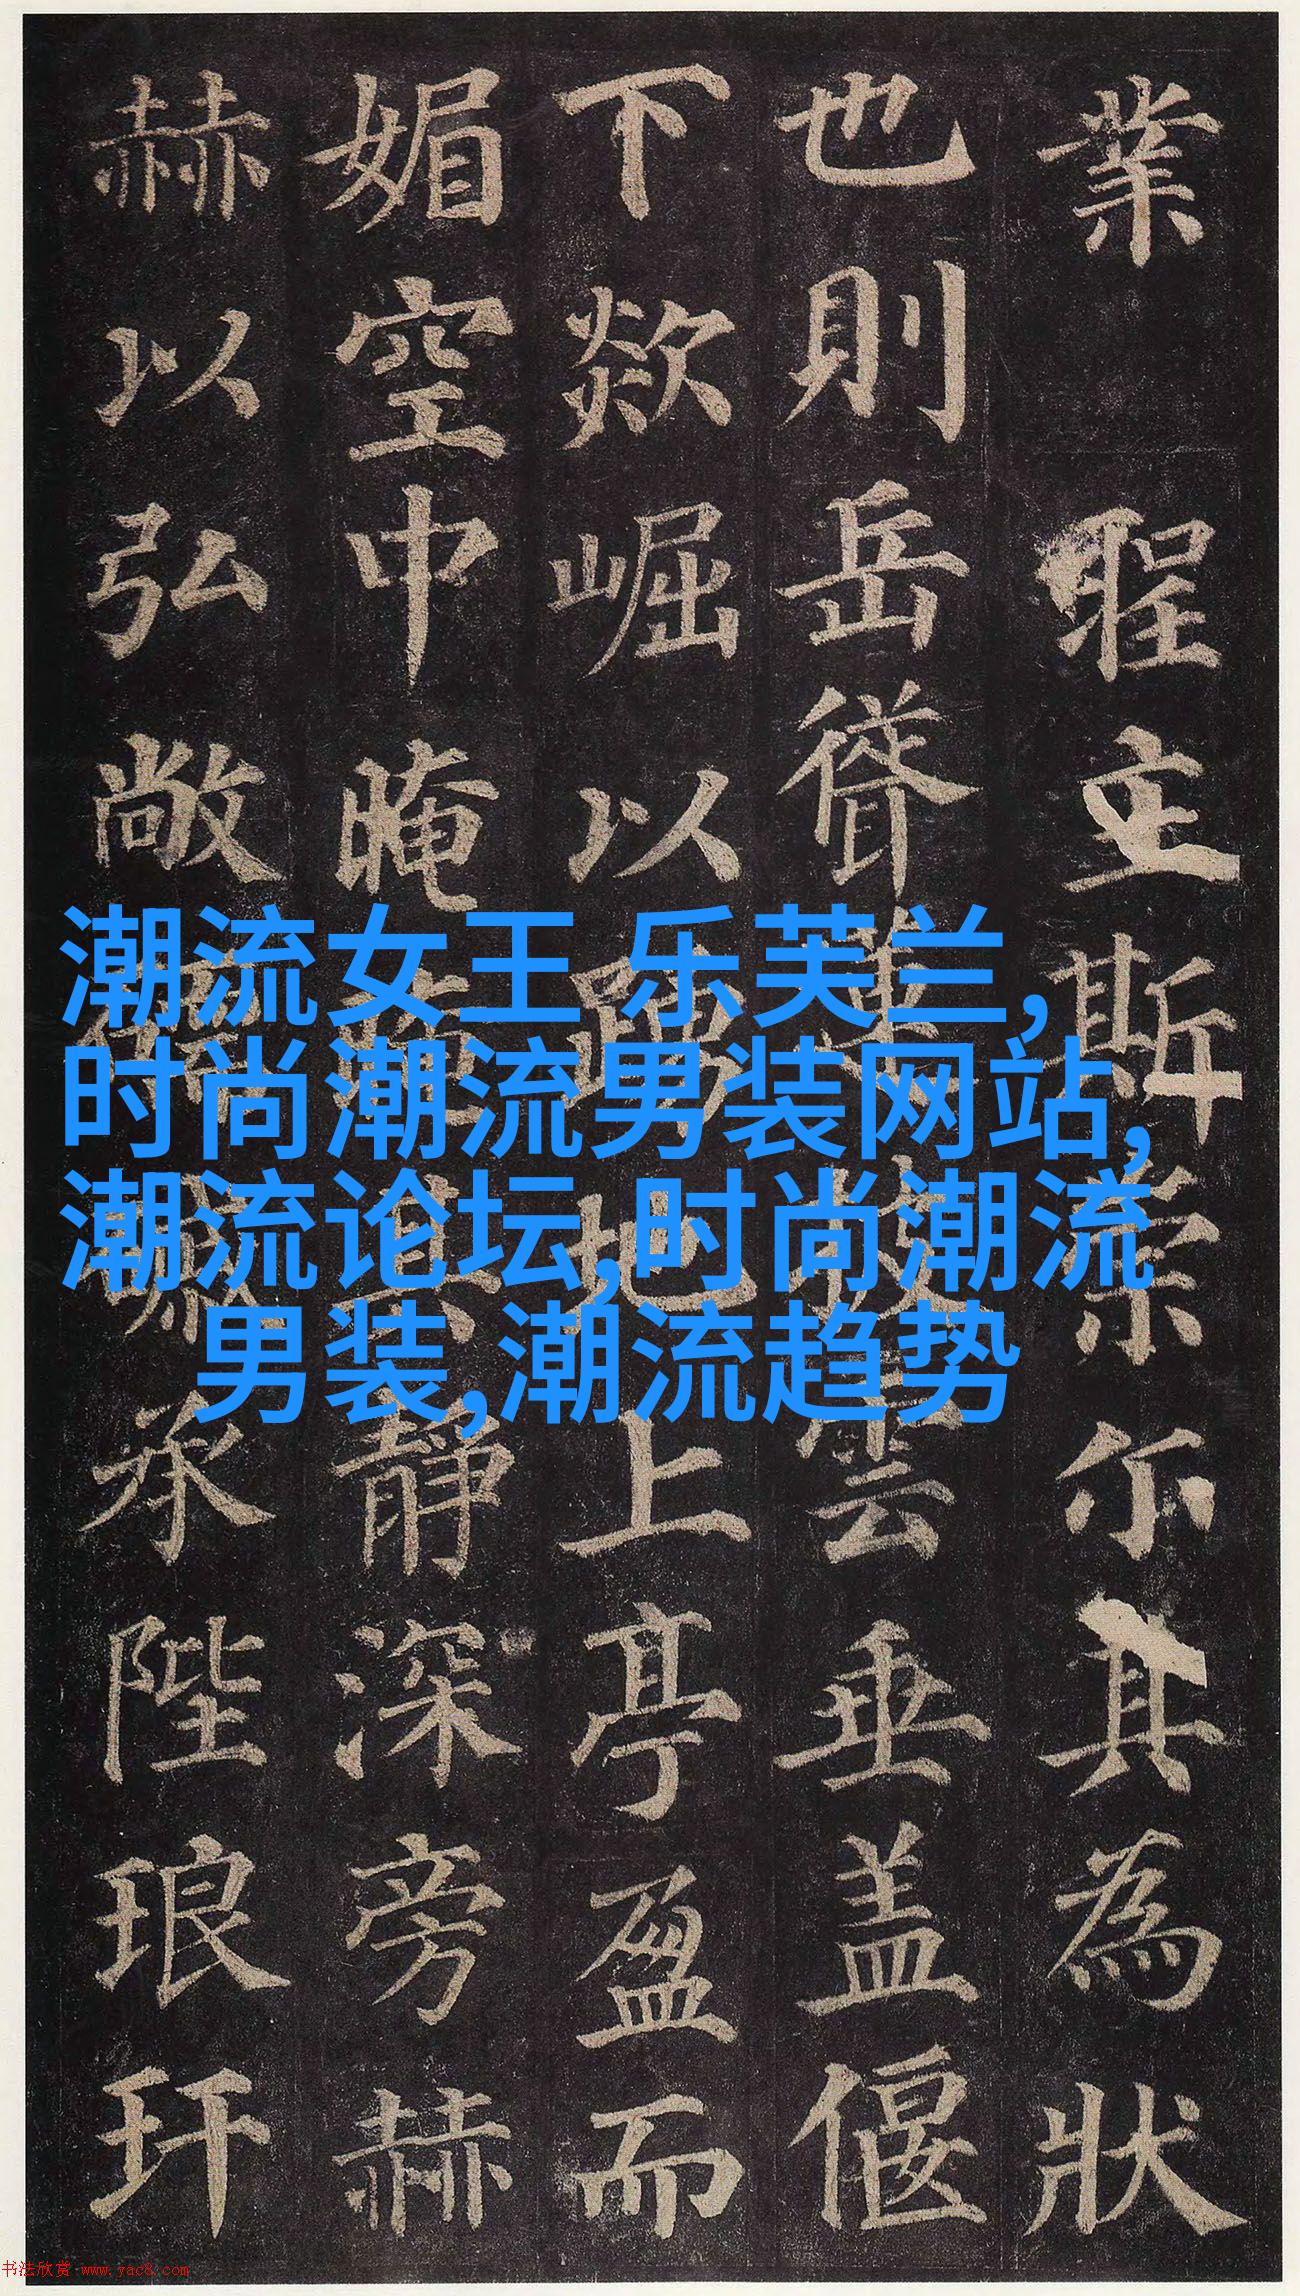 業 聖立斯崇尓其為狀
也則岳聳蓮披雲垂盖偃
下欻崛以踊地上亭盈而
媚空中晻晻其静深旁赫
赫以弘敞承陛琅玕
潮流女王 乐芙兰,
时尚潮流男装网站,
潮流论坛,时尚潮流
男装,潮流趋势
书法欣赏 www.yac8.com